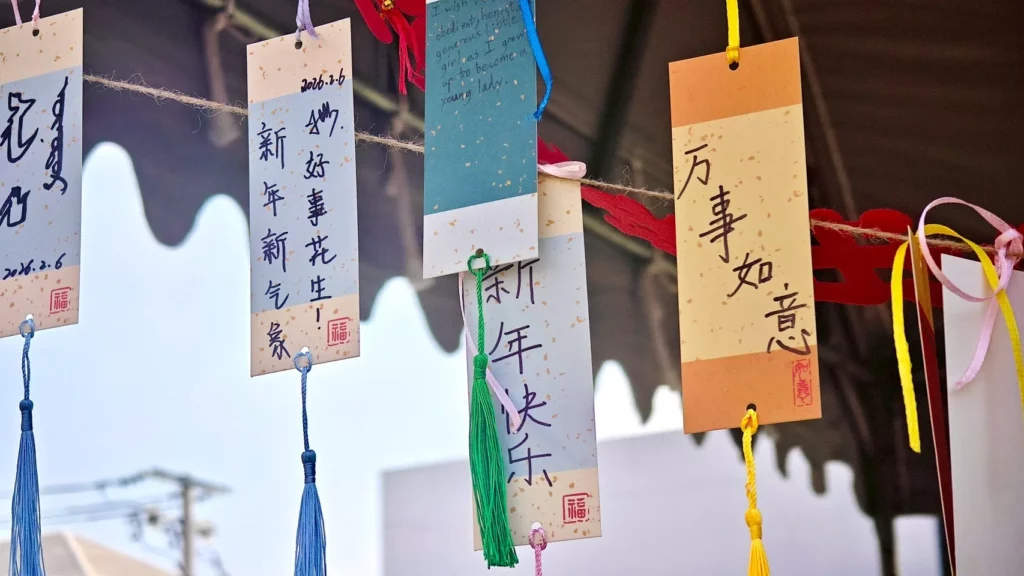 2026.2.6
福
2026.2.6
好事花生!
新年新气象
福
I wish
generous I grow
girl as I
up to become
young lady.
新年快乐
福
万事如意
如意